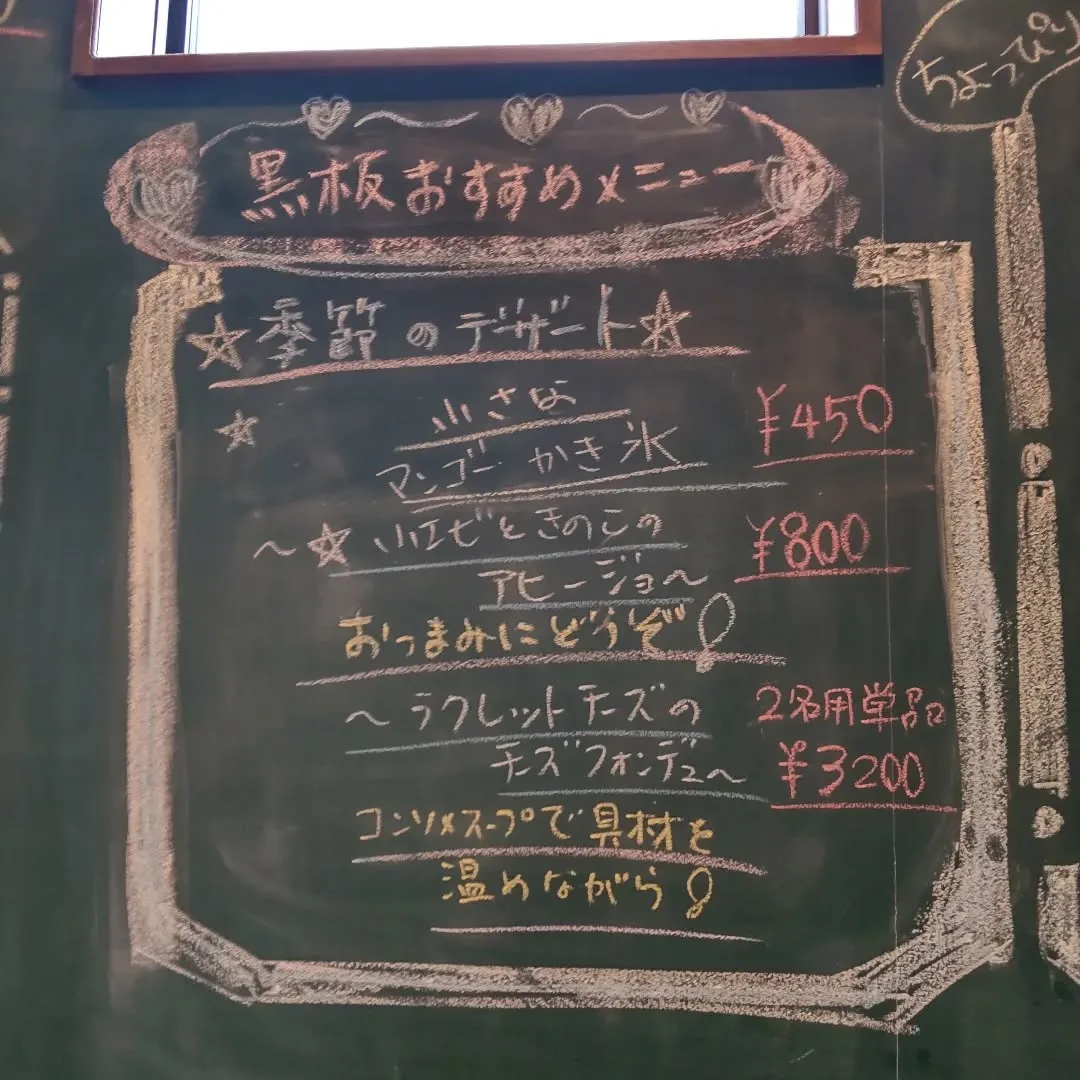 ちょっぴり
黒板おすすめメニュー
☆季節のデザート☆
☆ 小さな
マンゴーかき氷 ¥450
〜☆小エビときのこの
アヒージョ〜 ¥800
おつまみにどうぞ!
〜ラクレットチーズの 2名用単品
チーズフォンデュ〜 ¥3200
コンソメスープで具材を
温めながら!